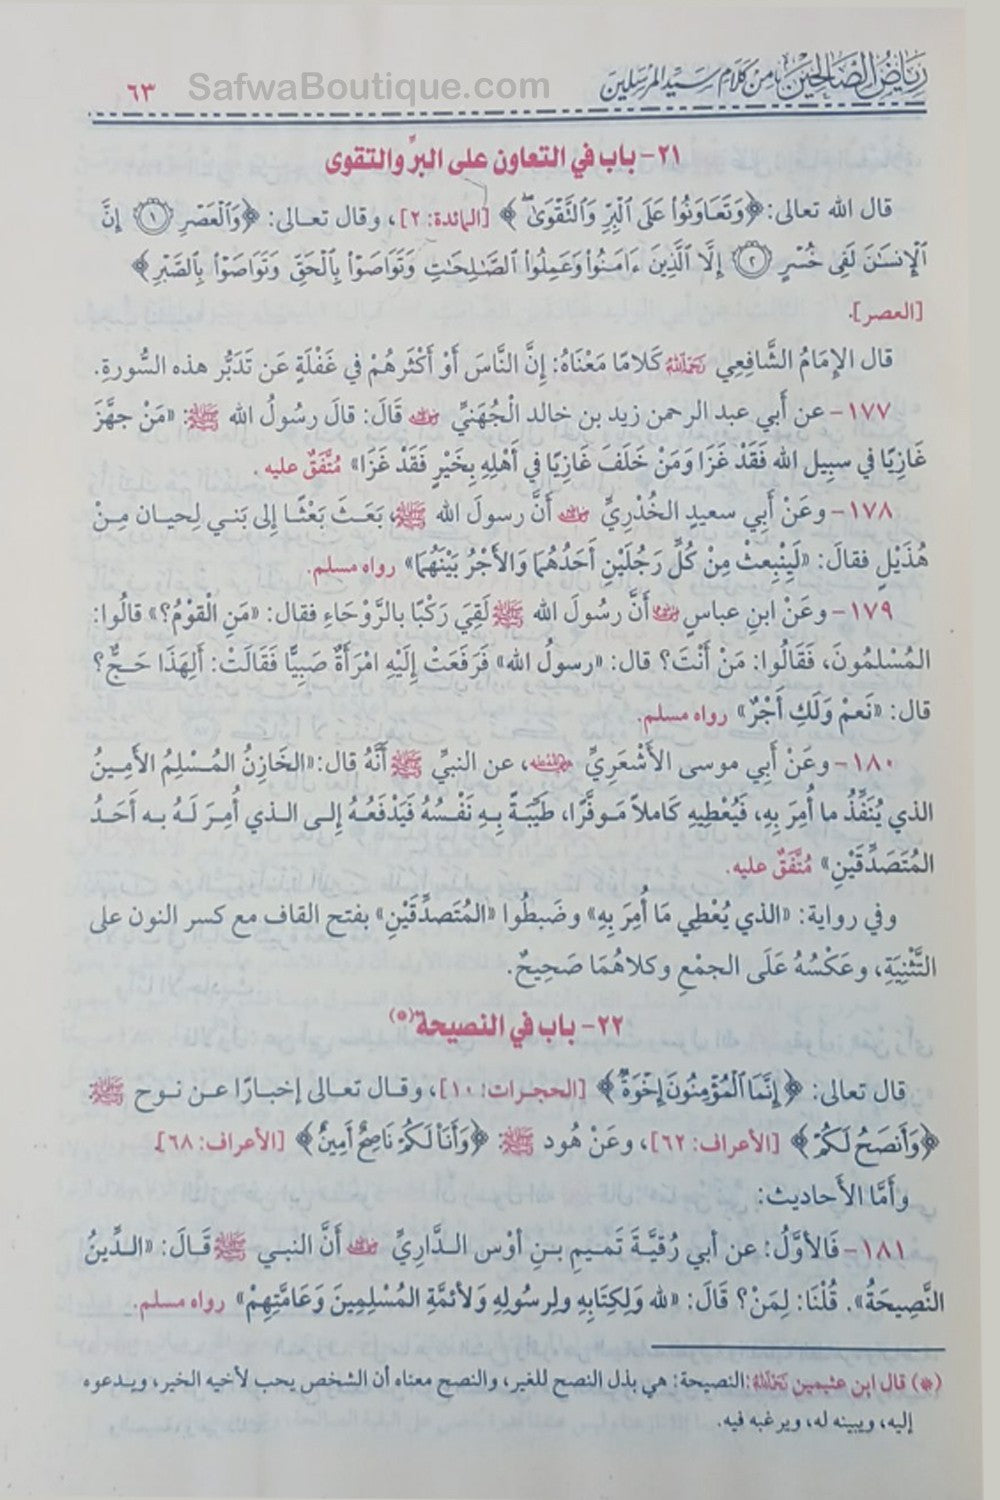 رياض الصالحين من كلام سيد المرسلين
SafwaBoutique.com
٦٣
٢١- باب في التعاون على البرِّ والتقوى
قال الله تعالى: ﴿وَتَعَاوَنُوا۟ عَلَى ٱلْبِرِّ وَٱلتَّقْوَىٰ﴾ [المائدة: ٢]، وقال تعـالى: ﴿وَٱلْعَصْرِ ۝١ إِنَّ
ٱلْإِنسَـٰنَ لَفِى خُسْرٍ ۝٢ إِلَّا ٱلَّذِينَ ءَامَنُوا۟ وَعَمِلُوا۟ ٱلصَّـٰلِحَـٰتِ وَتَوَاصَوْا۟ بِٱلْحَقِّ وَتَوَاصَوْا۟ بِٱلصَّبْرِ﴾
[العصر].
قال الإِمَامُ الشَّافِعِي رَحِمَهُ اللَّهُ كَلامًا مَعْنَاهُ: إِنَّ النَّاسَ أَوْ أَكْثَرُهُمْ في غَفْلَةٍ عَن تَدَبُّر هذه السُّورةِ.
١٧٧- عن أَبي عبد الرحمن زيد بن خالد الْجُهَنيِّ رضي الله عنه قَالَ: قالَ رسُولُ الله ﷺ: «مَنْ جهَّزَ
غَازِيًا في سبِيل الله فَقَدْ غَزَا وَمَنْ خَلَفَ غَازِيًا في أَهْلِهِ بِخَيْرٍ فَقَدْ غَزَا» مُتَّفَقٌ عليه.
١٧٨- وعَنْ أَبي سعيدٍ الخُدْرِيِّ رضي الله عنه أَنَّ رسولَ الله ﷺ، بَعَـثَ بَعْثًـا إِلى بَنـي لِحيـان مِـنْ
هُذَيْلٍ فقالَ: «لِيَنْبعِثْ مِنْ كُلِّ رَجُلَيْنِ أَحَدُهُمَا وَالأَجْرُ بَيْنَهُمَا» رواه مسلم.
١٧٩- وعَنْ ابنِ عباسٍ رضي الله عنهما أَنَّ رسُولَ الله ﷺ لَقِيَ رَكْبًا بالرَّوْحَاءِ فقال: «مَنِ الْقوْمُ؟» قالُوا:
المُسْلمُونَ، فَقَالُوا: مَنْ أَنْتَ؟ قال: «رسولُ الله» فَرَفَعَتْ إِلَيْهِ امْرَأَةٌ صَبِيًّا فَقَالَتْ: أَلِهَذَا حَـجٌّ؟
قال: «نَعمْ وَلَكِ أَجْرٌ» رواه مسلم.
١٨٠- وعَنْ أَبِي موسى الأَشْعَرِيِّ رضي الله عنه، عن النبيِّ ﷺ أَنَّهُ قال: «الخَازِنُ المُـسْلِمُ الأَمِـينُ
الذي يُنَفِّذُ ما أُمِرَ بِهِ، فَيُعْطِيهِ كَاملاً مَـوفَّرًا، طَيِّبَـةً بِـهِ نَفْـسُهُ فَيَدْفَعُـهُ إِلـى الـذي أُمِـرَ لَـهُ بـه أَحَـدُ
المُتَصَدِّقَيْنِ» مُتَّفَقٌ عليه.
وفي رواية: «الذي يُعْطِي مَا أُمِرَ بِهِ» وضَبطُوا «المُتَصدِّقَيْنِ» بفتح القاف مع كسر النون على
التَّثْنِيَةِ، وعَكْسُهُ عَلَى الجمْعِ وكلاهُمَا صَحِيحٌ.
٢٢- باب في النصيحة(*)
قال تعالى: ﴿إِنَّمَا ٱلْمُؤْمِنُونَ إِخْوَةٌ﴾ [الحجـرات: ١٠]، وقـال تعـالى إخبـارًا عـن نـوح ﷺ
﴿وَأَنصَحُ لَكُمْ﴾ [الأعراف: ٦٢]، وعَنْ هُود ﷺ ﴿وَأَنَا۠ لَكُمْ نَاصِحٌ أَمِينٌ﴾ [الأعراف: ٦٨].
وأَمَّا الأَحاديث:
١٨١- فَالأَوَّلُ: عن أبي رُقيَّـةَ تَمـيمِ بـنِ أوْس الـدَّاريِّ رضي الله عنه أَنَّ النبـي ﷺ قَـالَ: «الـدِّينُ
النَّصِيحَةُ». قُلْنَا: لِمَنْ؟ قَالَ: «لله وَلِكِتَابِهِ ولِرسُولِهِ وَلأَئمَّةِ المُسْلِمِينَ وَعَامَّتِهِمْ» رواه مسلم.
(*) قال ابن عثيمين رَحِمَهُ اللَّهُ: النصيحة: هي بذل النصح للغير، والنصح معناه أن الشخص يحب لأخيه الخير، ويـدعوه
إليه، ويبينه له، ويرغبه فيه.